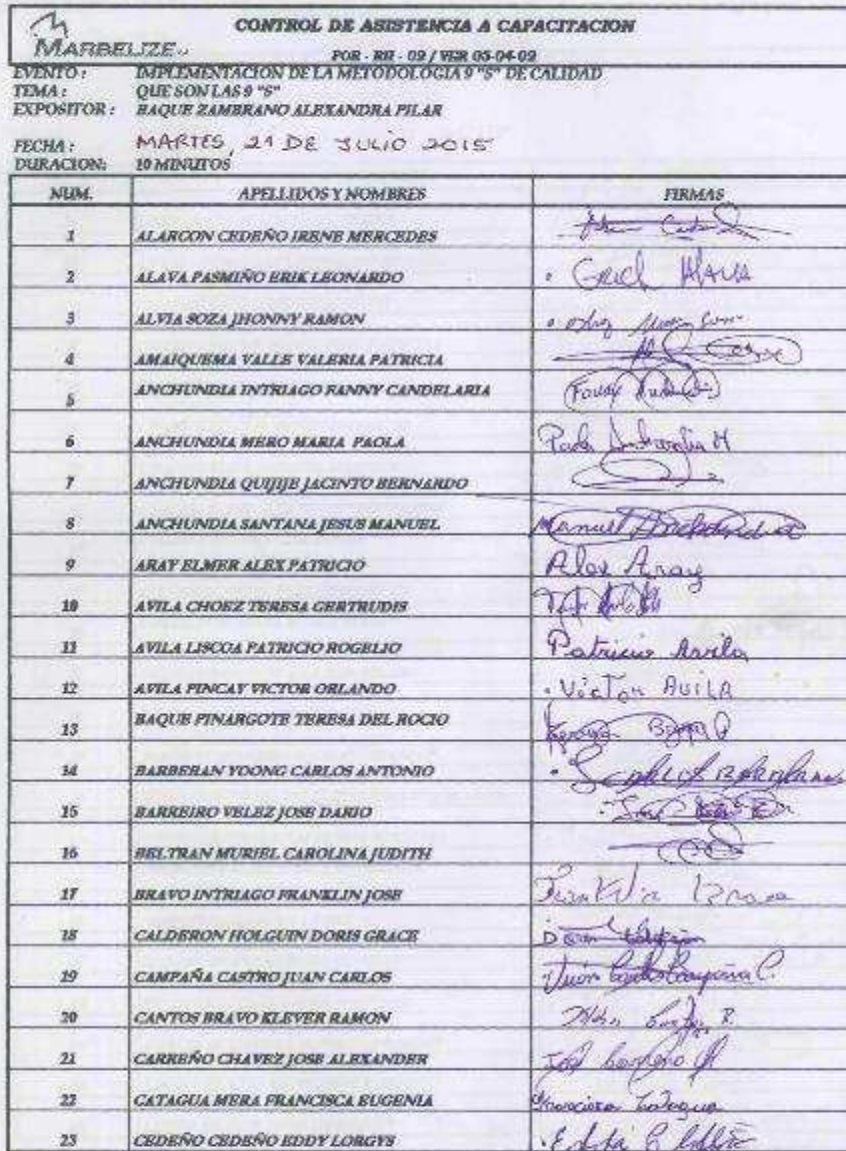 CONTROL DE ASISTENCIA A CAPACITACION
MARBELIZE
POR - RH - 09 / VER 05-04-09
EVENTO : IMPLEMENTACION DE LA METODOLOGIA 9 "S" DE CALIDAD
TEMA : QUE SON LAS 9 "S"
EXPOSITOR : BAQUE ZAMBRANO ALEXANDRA PILAR
FECHA : MARTES, 21 DE JULIO 2015
DURACION: 10 MINUTOS
NUM. APELLIDOS Y NOMBRES FIRMAS
1 ALARCON CEDEÑO IRENE MERCEDES
2 ALAVA PASMIÑO ERIK LEONARDO
3 ALVIA SOZA JHONNY RAMON
4 AMAIQUEMA VALLE VALERIA PATRICIA
5 ANCHUNDIA INTRIAGO FANNY CANDELARIA
6 ANCHUNDIA MERO MARIA PAOLA
7 ANCHUNDIA QUIJIJE JACINTO BERNARDO
8 ANCHUNDIA SANTANA JESUS MANUEL Manuel Anchundia
9 ARAY ELMER ALEX PATRICIO Alex Aray
10 AVILA CHOEZ TERESA GERTRUDIS
11 AVILA LISCOA PATRICIO ROGELIO Patricio Avila
12 AVILA PINCAY VICTOR ORLANDO Victor AVILA
13 BAQUE PINARGOTE TERESA DEL ROCIO
14 BARBERAN YOONG CARLOS ANTONIO
15 BARREIRO VELEZ JOSE DARIO
16 BELTRAN MURIEL CAROLINA JUDITH
17 BRAVO INTRIAGO FRANKLIN JOSE
18 CALDERON HOLGUIN DORIS GRACE
19 CAMPAÑA CASTRO JUAN CARLOS Juan Carlos Campaña C.
20 CANTOS BRAVO KLEVER RAMON
21 CARREÑO CHAVEZ JOSE ALEXANDER
22 CATAGUA MERA FRANCISCA EUGENIA Francisca Catagua
23 CEDEÑO CEDEÑO EDDY LORGYS